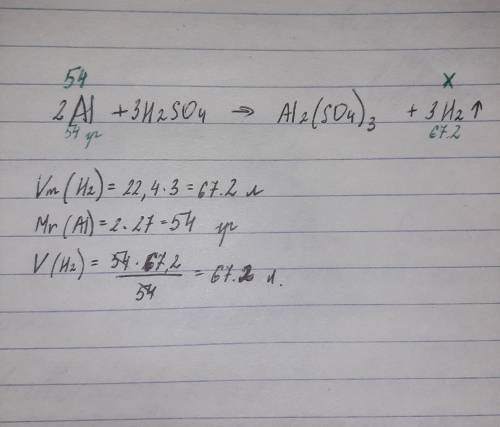 54 x
2Al + 3H2SO4 → Al2(SO4)3 + 3H2↑
54 гр 67.2
Vm(H2) = 22,4·3 = 67.2 л
Mr(Al) = 2·27 = 54 гр
V(H2) = 54·67,2 / 54 = 67.2 л.